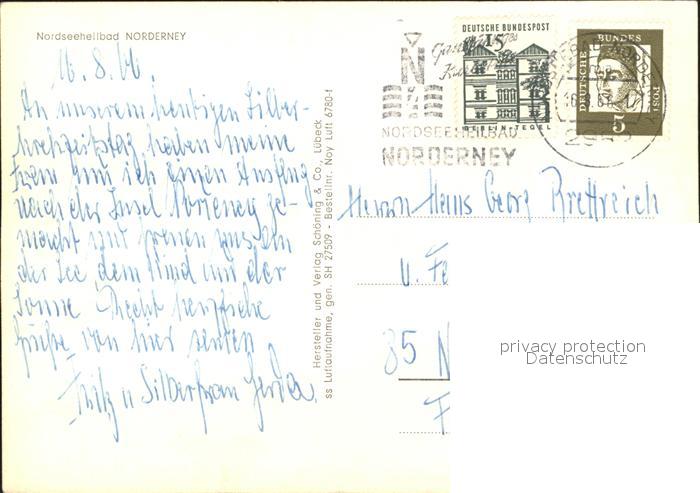 Nordseeheilbad NORDERNEY
16.8.66.
An unserem heutigen Silber-
hochzeitstag haben meine
Frau und ich einen Ausflug
nach der Insel Norderney ge-
macht und freuen uns an
der See, dem Wind und der
Sonne. Recht herzliche
Grüße von hier senden
Fritz u. Silberfrau Gerda.
Hersteller und Verlag Schöning & Co., Lübeck
ss Luftaufnahme, gen. SH 27509 - Bestellnr. Noy Luft 6780-f
NORDSEEHEILBAD
NORDERNEY
DEUTSCHE BUNDESPOST
15
BERLIN-TEGEL
DEUTSCHE BUNDES POST
5
Herrn Hans Georg Brettreich
u. Fa
85 N
F
privacy protection
Datenschutz